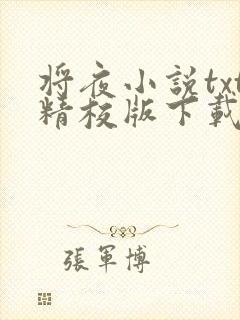 将夜小説txt
精校版下載
張軍博